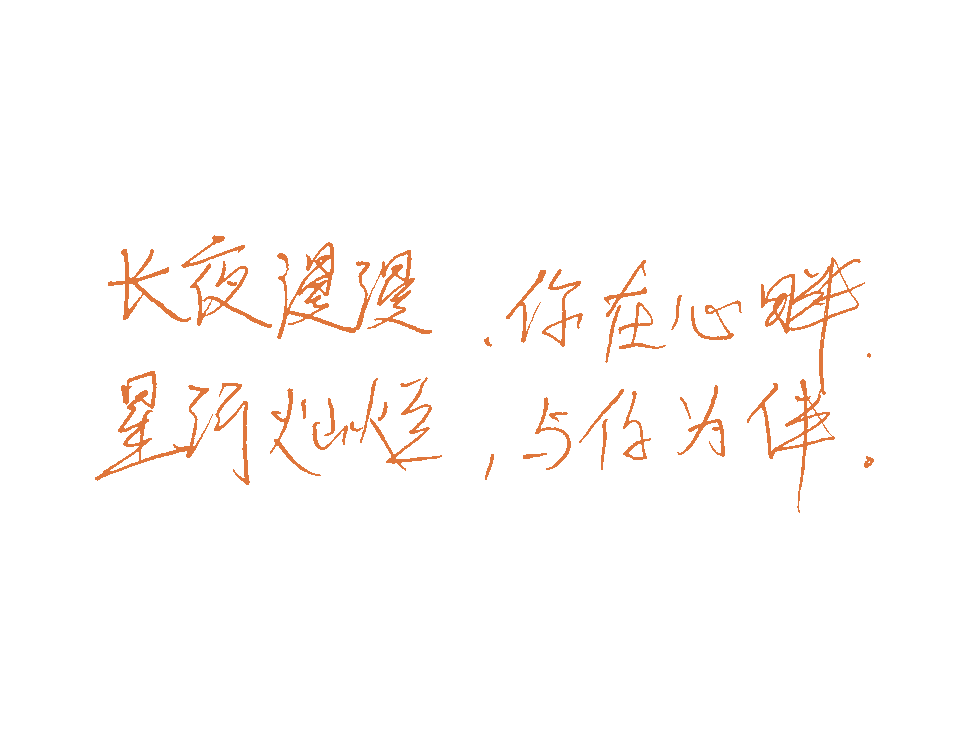 长夜漫漫，你在心畔.
星河灿烂，与你为伴。